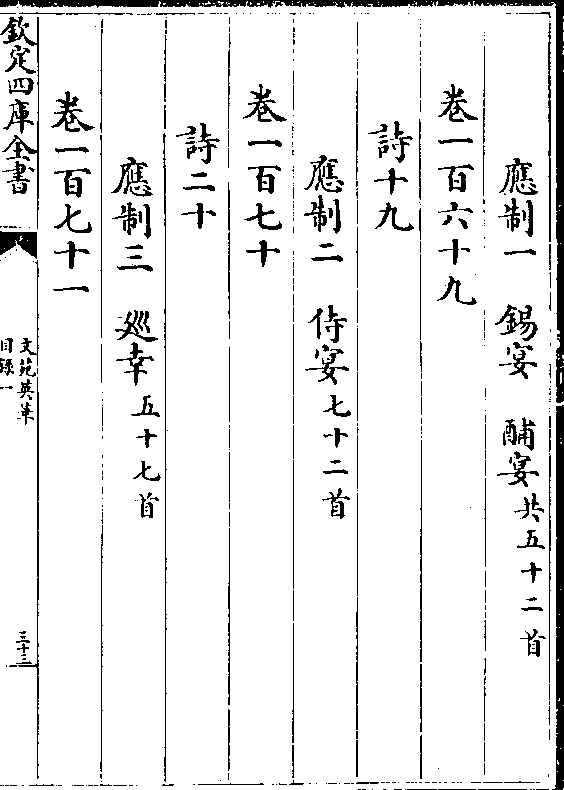 應制一　錫宴　酺宴共五十二首
卷一百六十九
詩十九
應制二　侍宴七十二首
卷一百七十
詩二十
應制三　巡幸五十七首
卷一百七十一
欽定四庫全書
文苑英華
目録一
三十三